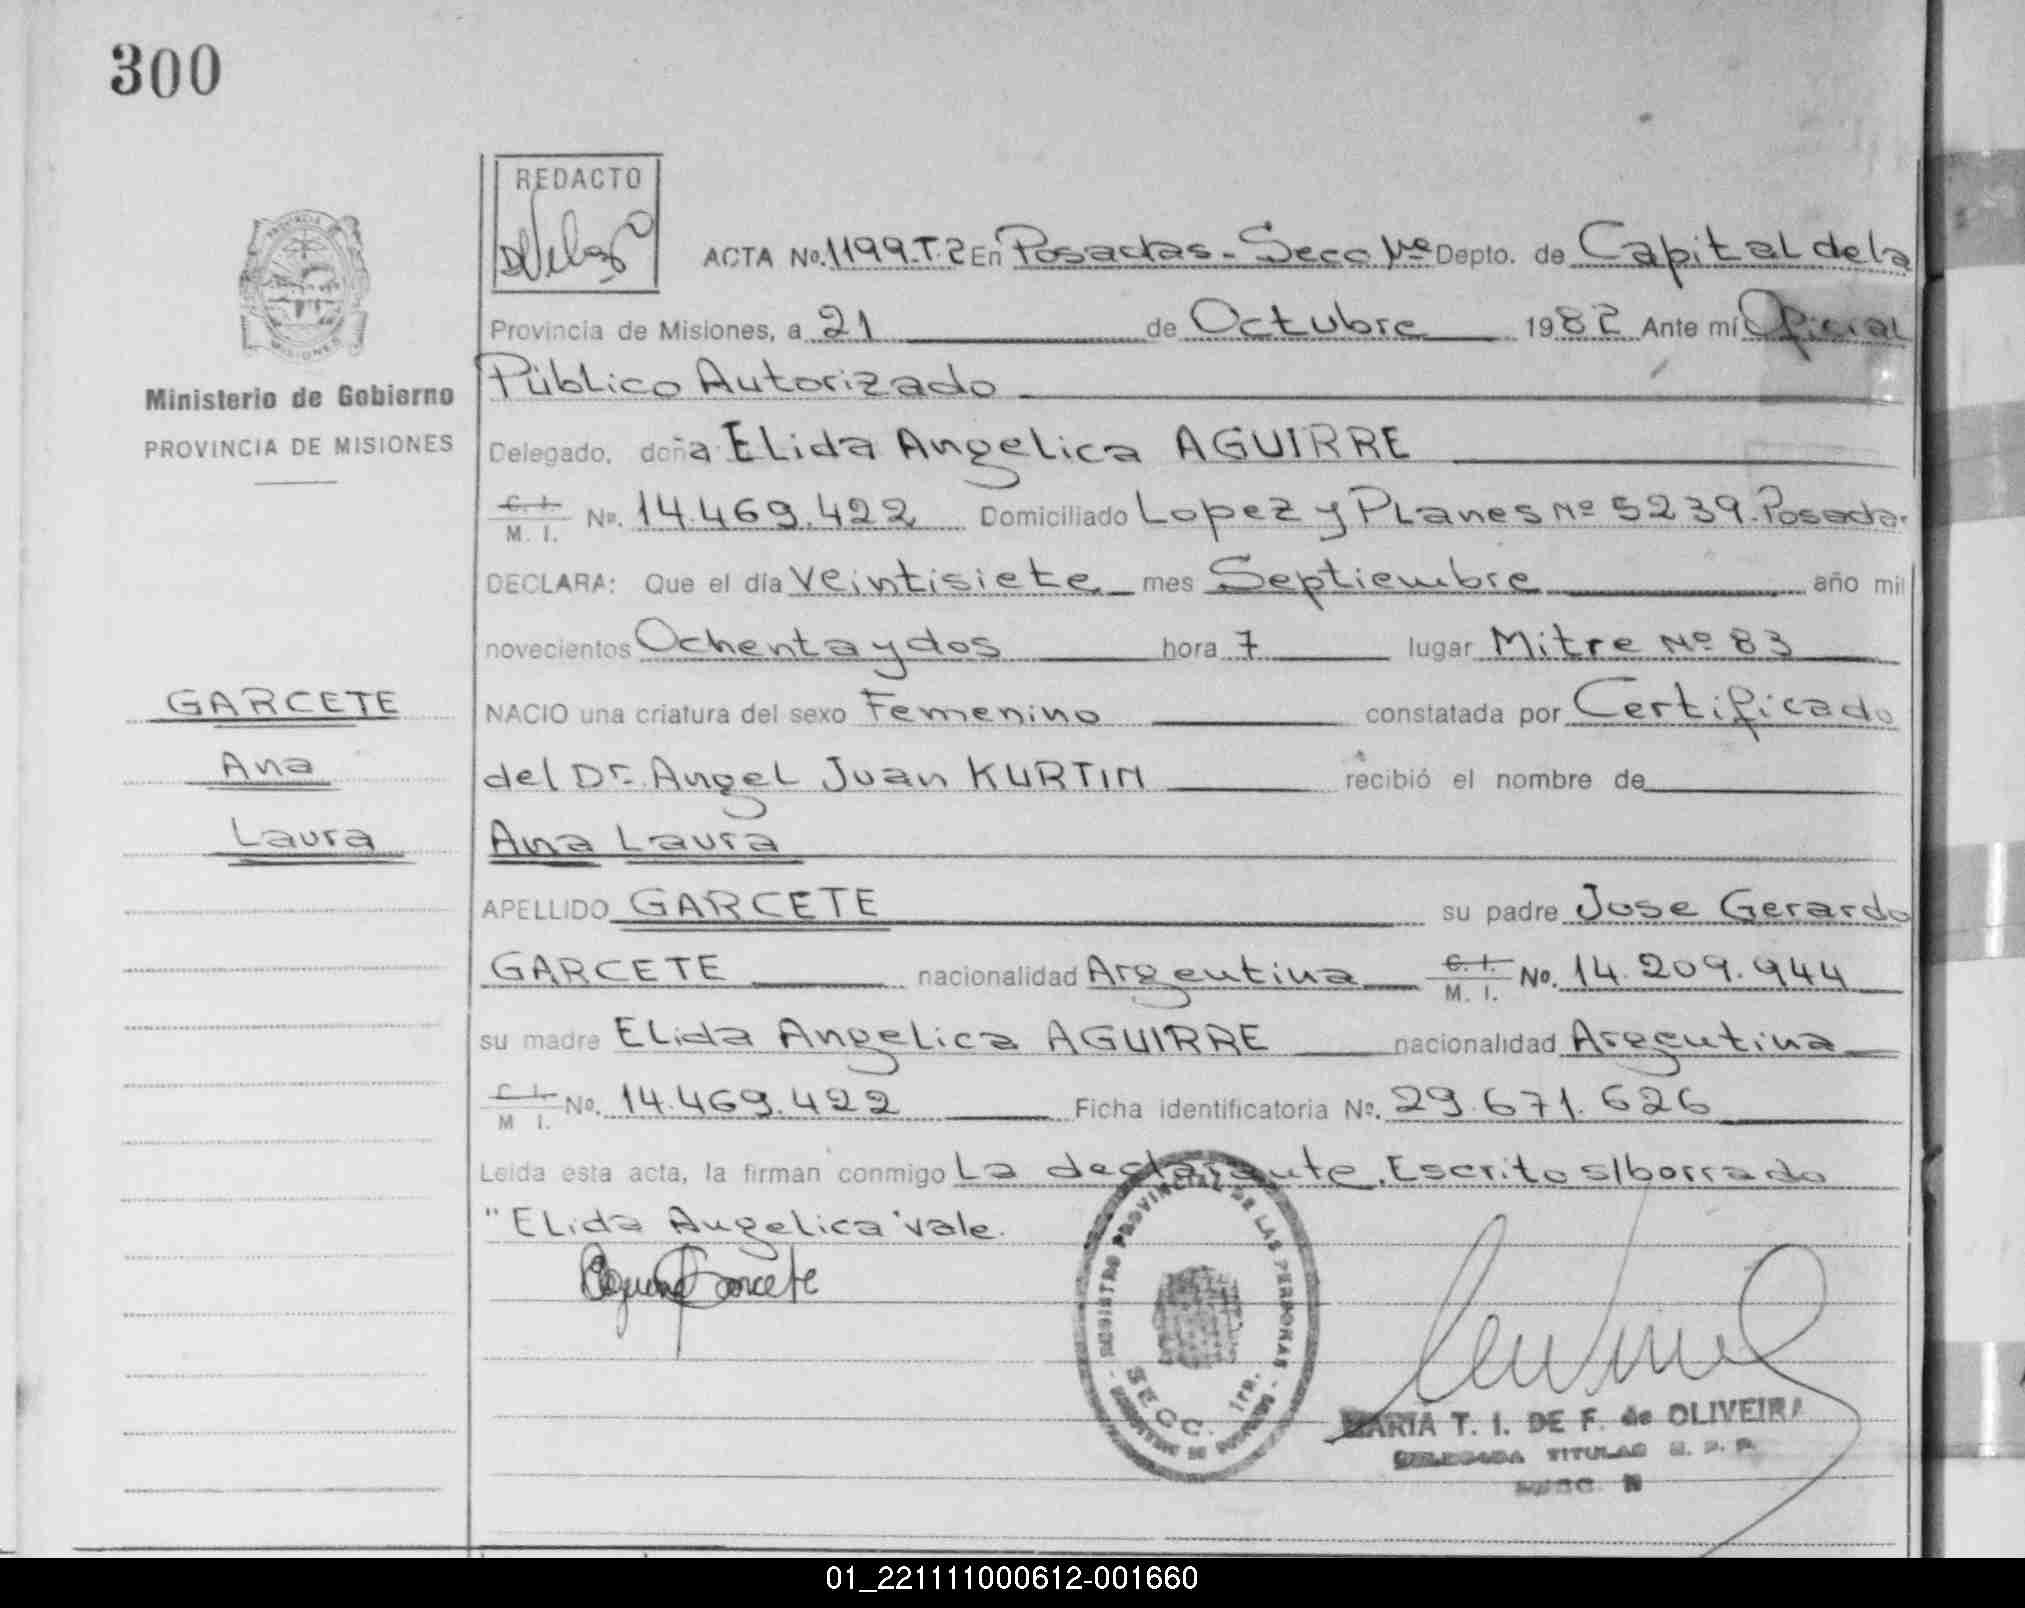 300
REDACTO
ACTA No. 1199.T.2 En Posadas - Secc 1ra Depto. de Capital de la
Provincia de Misiones, a 21 de Octubre 1982 Ante mí Oficial
Público Autorizado
Ministerio de Gobierno
PROVINCIA DE MISIONES
Delegado, doña ELida Angelica AGUIRRE
C. I. / M. I. No. 14.469.422 Domiciliado Lopez y PLanes Nº 5239. Posadas.
DECLARA: Que el día veintisiete mes Septiembre año mil
novecientos Ochenta y dos hora 7 lugar Mitre Nº 83
GARCETE
Ana
Laura
NACIO una criatura del sexo Femenino constatada por Certificado
del Dr. Angel Juan KURTIN recibió el nombre de
Ana Laura
APELLIDO GARCETE su padre Jose Gerardo
GARCETE nacionalidad Argentina C. I. / M. I. No. 14.209.944
su madre ELida Angelica AGUIRRE nacionalidad Argentina
C. I. / M I. No. 14.469.422 Ficha identificatoria No. 29.671.626
Leida esta acta, la firman conmigo La declarante. Escrito s/borrado
"ELida Angelica" vale.
REGISTRO PROVINCIAL DE LAS PERSONAS
SECC. 1ra.
MARIA T. I. DE F. de OLIVEIRA
DELEGADA TITULAR R. P. P.
01_221111000612-001660